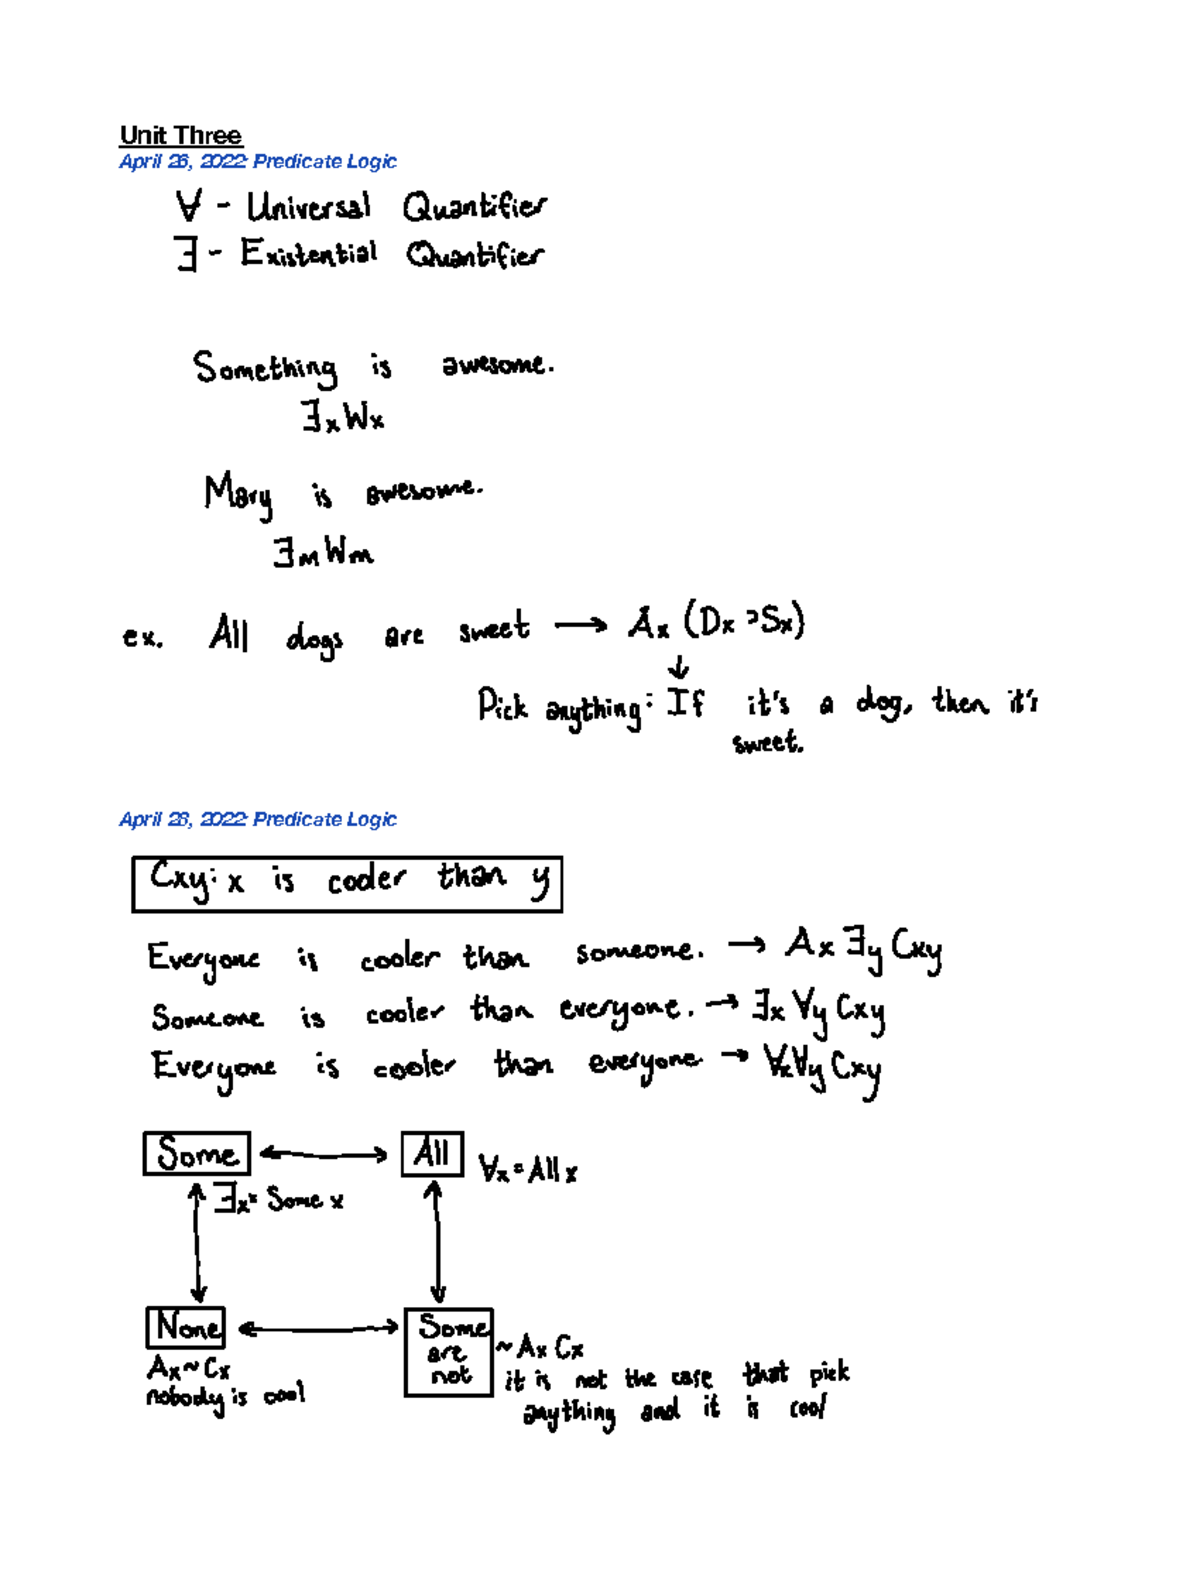 Unit Three
April 26, 2022: Predicate Logic
∀ - Universal Quantifier
∃ - Existential Quantifier
Something is awesome.
∃xWx
Mary is awesome.
∃mWm
ex. All dogs are sweet → Ax (Dx ⊃ Sx)
↓
Pick anything: If it's a dog, then it's
sweet.
April 28, 2022: Predicate Logic
Cxy: x is cooler than y
Everyone is cooler than someone. → Ax ∃y Cxy
Someone is cooler than everyone. → ∃x ∀y Cxy
Everyone is cooler than everyone → ∀x∀y Cxy
Some ↔ All ∀x = All x
∃x = Some x
None ↔ Some are not
~Ax Cx
Ax~Cx
nobody is cool
it is not the case that pick
anything and it is cool